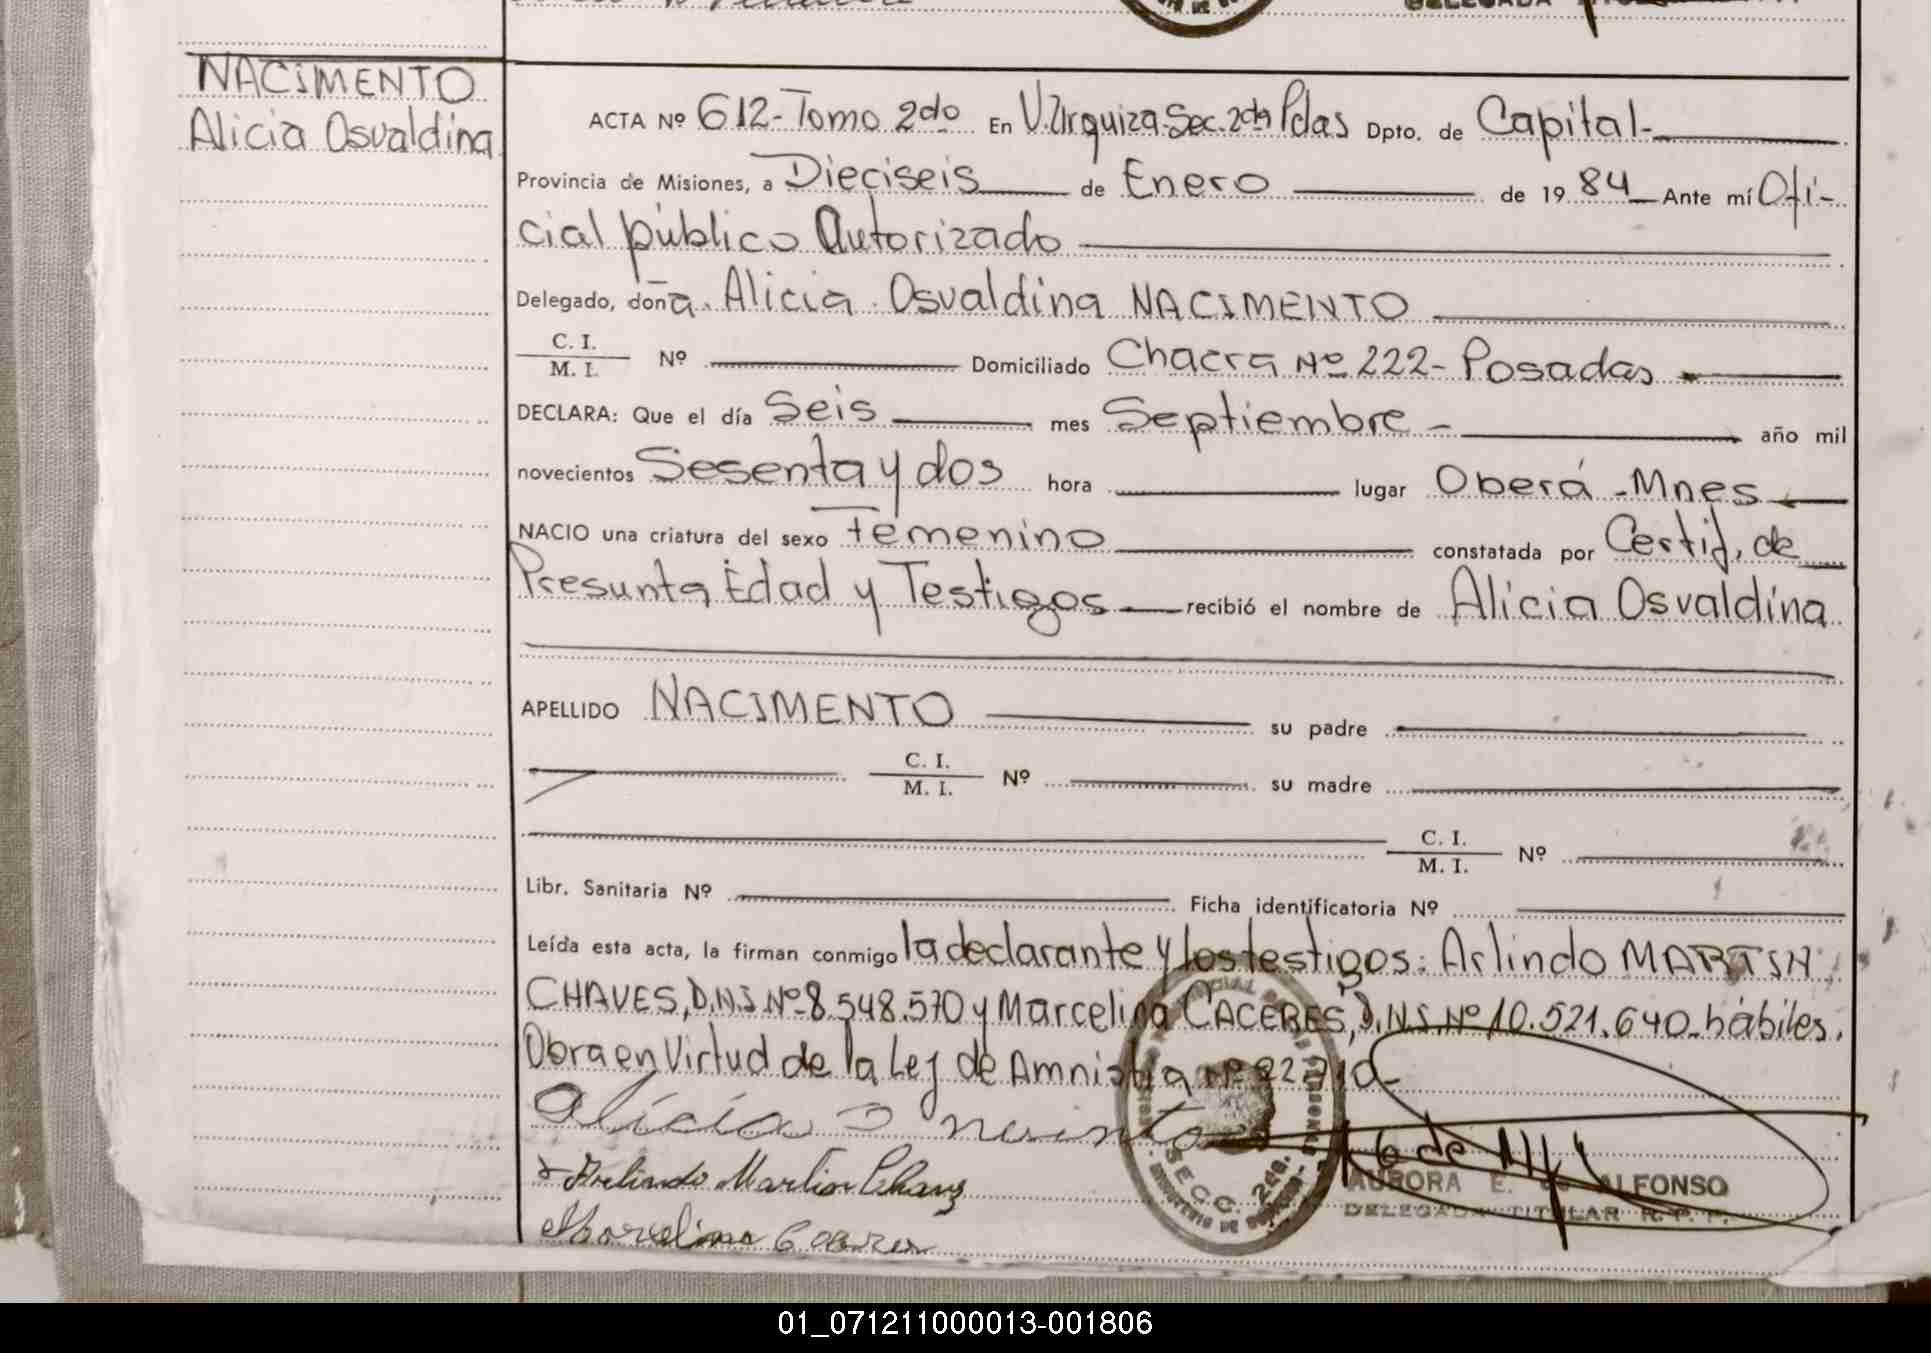 NACIMENTO
Alicia Osvaldina
ACTA Nº 612-Tomo 2do En V.Urquiza-Sec.2da Pdas Dpto. de Capital-
Provincia de Misiones, a Dieciseis de Enero de 1984 Ante mí Ofi-
cial público Autorizado
Delegado, doña. Alicia Osvaldina NACIMENTO
C. I.
M. I. Nº Domiciliado Chacra Nº 222-Posadas
DECLARA: Que el día Seis mes Septiembre - año mil
novecientos Sesenta y dos hora lugar Oberá -Mnes
NACIO una criatura del sexo Femenino constatada por Certif. de
Presunta Edad y Testigos recibió el nombre de Alicia Osvaldina
APELLIDO NACIMENTO su padre
C. I.
M. I. Nº su madre
C. I.
M. I. Nº
Libr. Sanitaria Nº Ficha identificatoria Nº
Leída esta acta, la firman conmigo la declarante y los testigos: Arlindo MARTIN
CHAVES, D.N.I. Nº 8.548.570 y Marcelina CACERES, D.N.I. Nº 10.521.640-hábiles.
Obra en Virtud de la Ley de Amnistia Nº
Alicia O
Arlindo Martin Chaves
Marcelina Caceres
SECC. 2da.
AURORA E. de ALFONSO
DELEGADA TITULAR R. P. P.
01_071211000013-001806